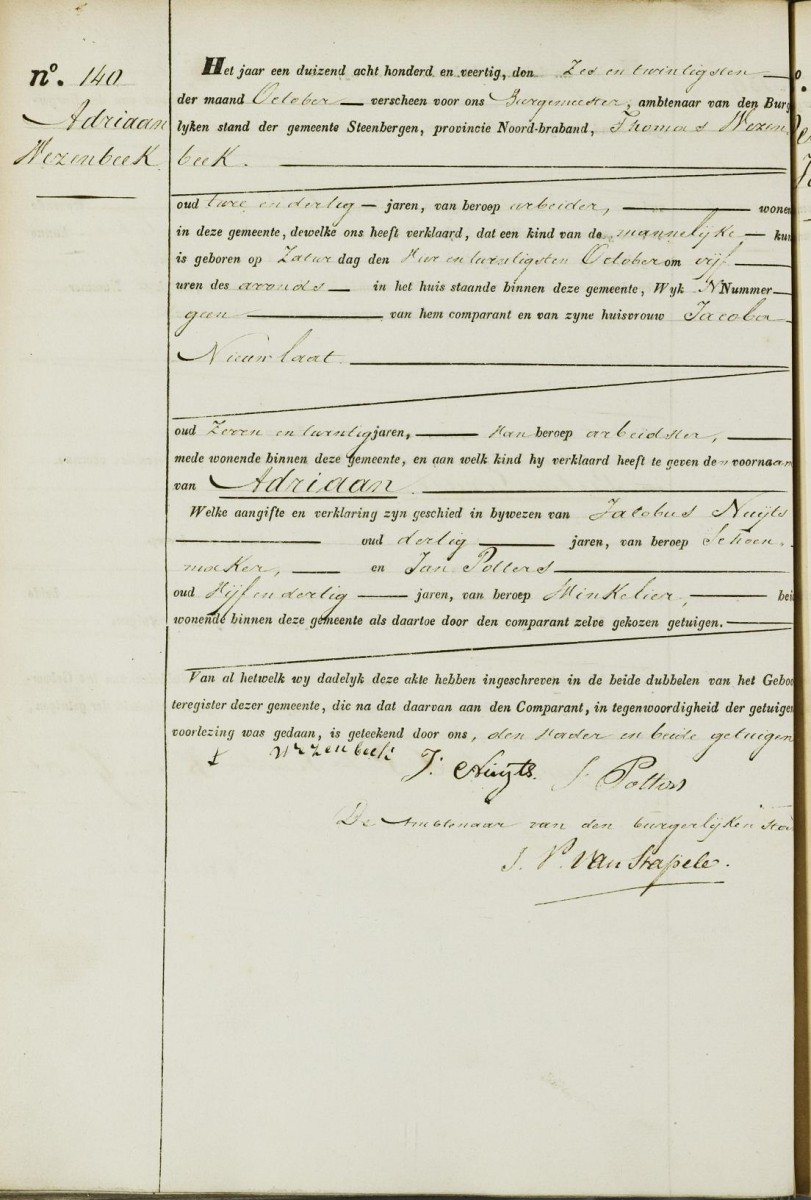 nº. 140
Adriaan
Wezenbeek
Het jaar een duizend acht honderd en veertig, den Zes en twintigsten
der maand October verscheen voor ons Burgemeester, ambtenaar van den Burg
lyken stand der gemeente Steenbergen, provincie Noord-braband, Thomas Wezen
beek.
oud twee en dertig jaren, van beroep arbeider, wonen
in deze gemeente, dewelke ons heeft verklaard, dat een kind van de mannelijke kun
is geboren op Zatur dag den Vier en twintigsten October om vijf
uren des avonds in het huis staande binnen deze gemeente, Wyk N Nummer
geen van hem comparant en van zyne huisvrouw Jacoba
Nieuwlaat.
oud Zeven en twintig jaren, van beroep arbeidster,
mede wonende binnen deze gemeente, en aan welk kind hy verklaard heeft te geven den voornaam
van Adriaan
Welke aangifte en verklaring zyn geschied in bywezen van Jacobus Nuijts
oud dertig jaren, van beroep Schoen-
maker, en Jan Potters
oud Vijf en dertig jaren, van beroep Winkelier, bei
wonende binnen deze gemeente als daartoe door den comparant zelve gekozen getuigen.
Van al hetwelk wy dadelyk deze akte hebben ingeschreven in de beide dubbelen van het Geboo
teregister dezer gemeente, die na dat daarvan aan den Comparant, in tegenwoordigheid der getuigen
voorlezing was gedaan, is geteekend door ons, den Vader en beide getuigen
t Wezenbeek J. Nuyts. J. Potters
De Ambtenaar van den burgerlijken sta
J. P. van Stapele.